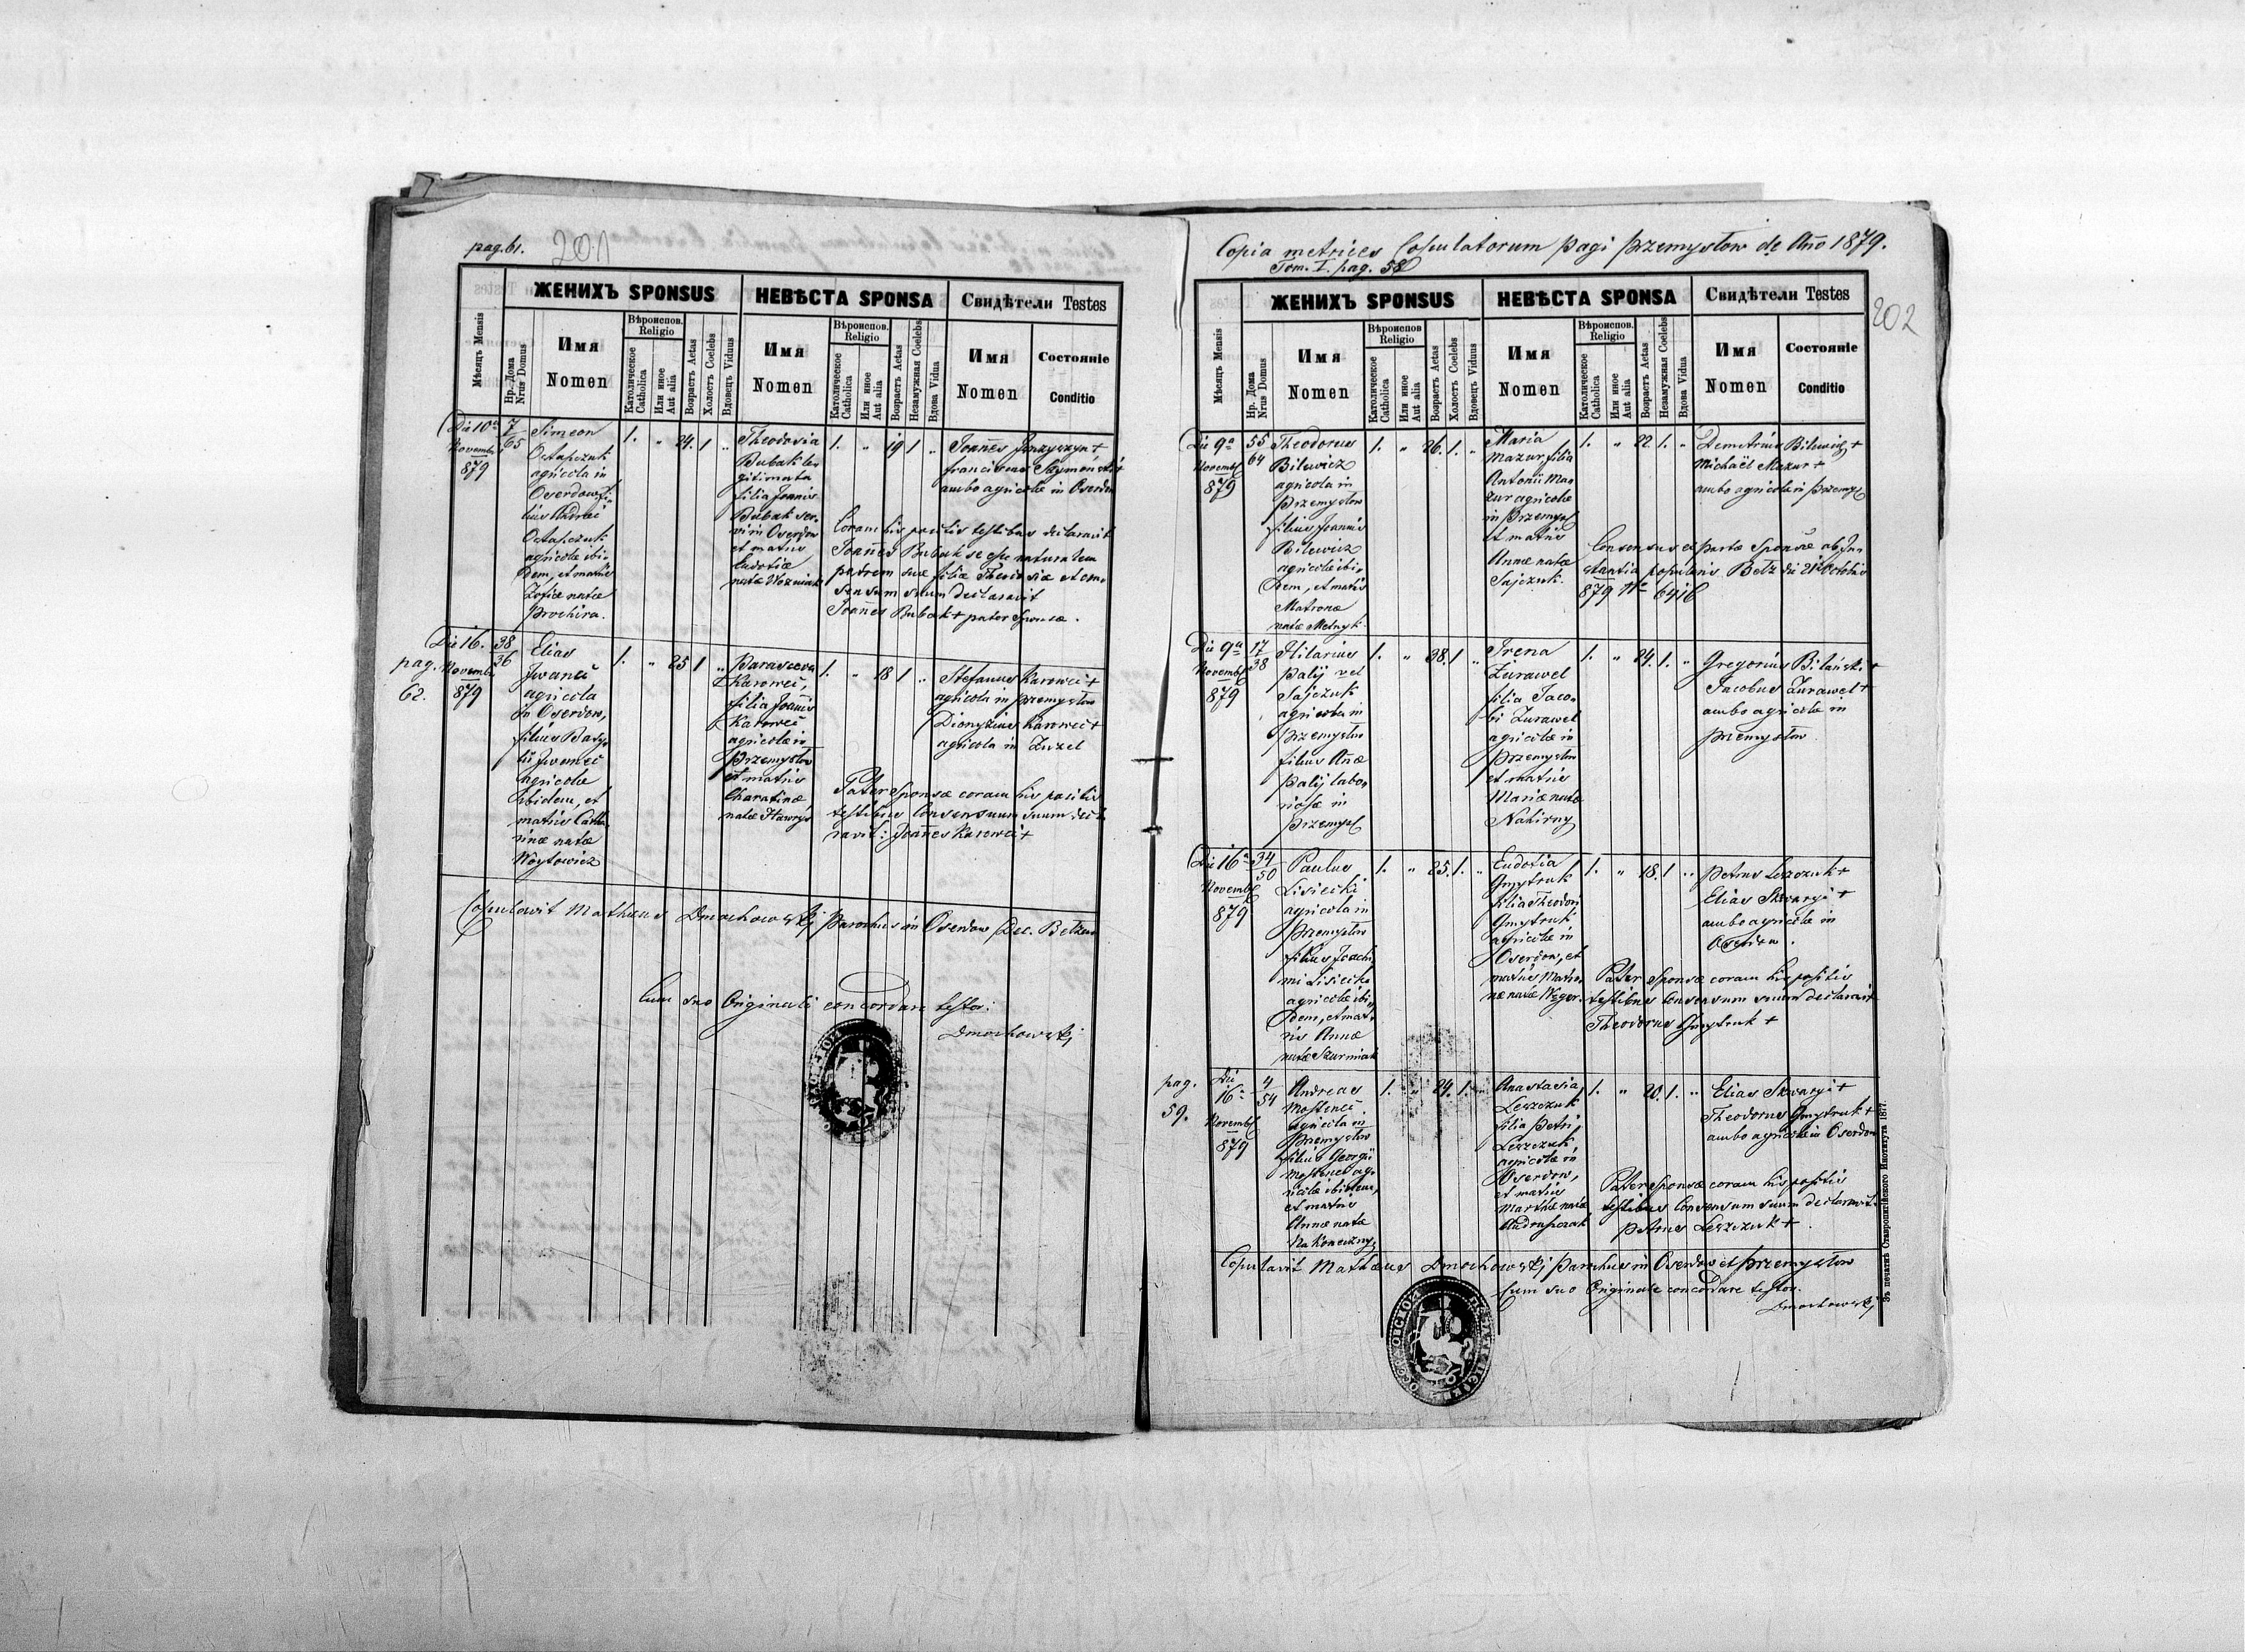 pag. 61.
201
ЖЕНИХЪ SPONSUS
НЕВѢСТА SPONSA
Свидѣтели Testes
Мѣсяцъ Mensis
Нр. Дома
Nrus Domus
Имя
Nomen
Вѣроиспов.
Religio
Католическое
Catholica
Или иное
Aut alia
Возрастъ Aetas
Холостъ Coelebs
Вдовецъ Viduus
Имя
Nomen
Вѣроиспов.
Religio
Католическое
Catholica
Или иное
Aut alia
Возрастъ Aetas
Незамужная Coelebs
Вдова Vidua
Имя
Nomen
Состоянiе
Conditio
Die 10a
Novembr
879
7
65
Simeon
Ostapczuk
agricola in
Oserdow fi-
lius Andrei
Ostapczuk
agricolae ibi-
dem, et matris
Zofiae natae
Prochira.
1. " 24. 1 "
Theodosia
Bubak le-
gitimata
filia Joanis
Bubak ser-
vi in Oserdow
et matris
Eudociae
natae Wozniak
1. " 19 1 "
Joannes +
Franciscus +
ambo agricolae in Oserdow
Coram his positis testibus declaravit
Joannes Bubak se esse naturalem
patrem suae filiae Theodosiae et con-
sensum suum declaravit
Joanes Bubak + pater Sponsae.
pag.
62.
Die 16.
Novembr
879
38
36
Elias
Iwaneć
agricola
in Oserdow,
filius Basy-
lii Iwaneć
agricolae
ibidem, et
matris Catha-
rinae natae
Woytowicz
1. " 25 1 "
Parasceva
Karoweć,
filia Joannis
Karoweć
agricolae in
Przemysłow
et matris
Charatinae
natae Hawryś
1. " 18 1 "
Stefanus Karoweć +
agricola in Przemysłow
Dionyzius Karoweć +
agricola in Zuzel
Pater Sponsae coram his positis
testibus Consensum suum decla-
ravit: Joannes Karoweć +
Copulavit Mathaeus Dmochowskj Parochus in Oserdow Dec. Belzen
Cum suo Originali concordare testor:
Dmochowskj
Copia metrices Copulatorum pagi Przemysłow de Ano 1879.
Tom. I. pag. 58
202
ЖЕНИХЪ SPONSUS
НЕВѢСТА SPONSA
Свидѣтели Testes
Мѣсяцъ Mensis
Нр. Дома
Nrus Domus
Имя
Nomen
Вѣроиспов
Religio
Католическое
Catholica
Или иное
Aut alia
Возрастъ Aetas
Холостъ Coelebs
Вдовецъ Viduus
Имя
Nomen
Вѣроиспов.
Religio
Католическое
Catholica
Или иное
Aut alia
Возрастъ Aetas
Незамужная Coelebs
Вдова Vidua
Имя
Nomen
Состоянiе
Conditio
Die 9a
Novembr
879
55
64
Theodorus
Bilewicz
agricola in
Przemysłow
filius Joannis
Bilewicz
agricolae ibi-
dem, et matris
Matronae
natae Melnyk
1. " 26. 1. "
Maria
Mazur, filia
Antonii Ma-
zur agricolae
in Przemysł
et matris
Annae natae
Sajczuk.
1. " 22. 1. "
Demetrius Bilewicz +
Michaël Mazur +
ambo agricolae in Przemysł
Consensus ex parte Sponsae ab In-
stantia pupilaris Belz die 21 Octobris
879 No 6416
Die 9a
Novembr
879
17
38
Hilarius
Palij vel
Sajczuk
agricola in
Przemysłow
filius Anae
Palij labo-
riosae in
Przemysł
1. " 38. 1 "
Irena
Żurawel
filia Jaco-
bi Żurawel
agricolae in
Przemysłow
et matris
Mariae natae
Nahirny
1. " 24. 1. "
Gregorius +
Jacobus Żurawel +
ambo agricolae in
Przemysłow
Die 16a
Novembr
879
34
50
Paulus
Lisiecki
agricola in
Przemysłow
filius Joachi-
mi Lisiecki
agricolae ibi-
dem, et mat-
ris Annae
natae Szurmiak
1. " 25. 1. "
Eudoxia
Gmytruk
filia Theodori
Gmytruk
agricolae in
Oserdow, et
matris Matro-
nae natae Weger.
1. " 18. 1 "
Petrus Leszczuk +
Elias Skwaryi +
ambo agricolae in
Oserdow.
Pater Sponsae coram his positis
testibus Consensum suum declaravit
Theodorus Gmytruk +
pag.
59.
Die
16a
Novembr
879
4
54
Andreas
Mosteneć
agricola in
Przemysłow
filius Georgii
Mosteneć ag-
ricolae ibidem,
et matris
Annae natae
Nakoneczny
1. " 24. 1. "
Anastasia
Leszczuk
filia Petri
Leszczuk
agricolae in
Oserdow,
et matris
Marthae natae
1. " 20. 1. "
Elias Skwaryi +
Theodorus Gmytruk +
ambo agricolae in Oserdow
Pater Sponsae coram his positis
testibus Consensum suum declaravit.
Petrus Leszczuk +
Copulavit Mathaeus Dmochowskj Parochus in Oserdow et Przemysłow
Cum suo Originale concordare testor.
Dmochowskj
Зъ печатнѣ Ставропигійского Института 1877.